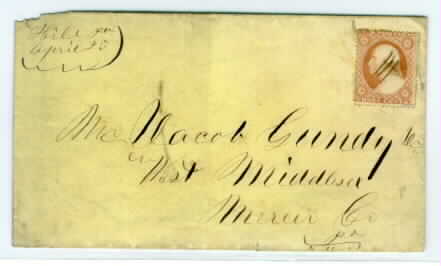 April 25
Mr Nacob Gundy
West Middlesex
Mercer Co
pa